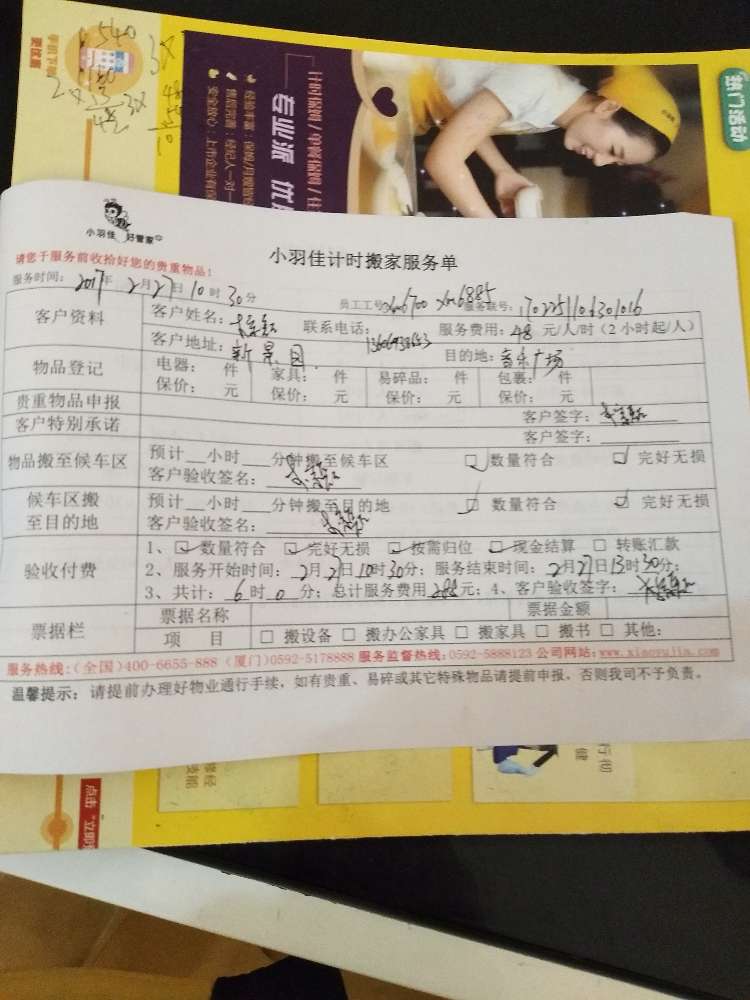 540
热门活动
计时保洁/单餐保姆/住
专业派 优
安全放心：上市企业有保
小羽佳 好管家
请您于服务前收拾好您的贵重物品！
小羽佳计时搬家服务单
服务时间：2017年2月27日10时30分
员工工号：xm6700 xm6885 服务联号：
客户资料
客户姓名： 联系电话： 服务费用：48元/人/时（2小时起/人）
客户地址：新景园 目的地：音乐广场
物品登记
电器： 件 家具： 件 易碎品： 件 包裹： 件
保价： 元 保价： 元 保价： 元 保价： 元
贵重物品申报 客户签字：
客户特别承诺 客户签字：
物品搬至候车区
预计__小时___分钟搬至候车区 ☑数量符合 ☑完好无损
客户验收签名：
候车区搬至目的地
预计__小时___分钟搬至目的地 ☑数量符合 ☑完好无损
客户验收签名：
验收付费
1、☑数量符合 ☑完好无损 ☑按需归位 ☑现金结算 □转账汇款
2、服务开始时间：2月27日10时30分；服务结束时间：2月27日13时30分；
3、共计：6时0分；总计服务费用288元；4、客户验收签字：
票据栏
票据名称 票据金额
项 目 □搬设备 □搬办公家具 □搬家具 □搬书 □其他：
服务热线：(全国)400-6655-888 (厦门)0592-5178888 服务监督热线：0592-5888123 公司网站：www.xiaoyujia.com
温馨提示：请提前办理好物业通行手续，如有贵重、易碎或其它特殊物品请提前申报，否则我司不予负责。
点击“立即